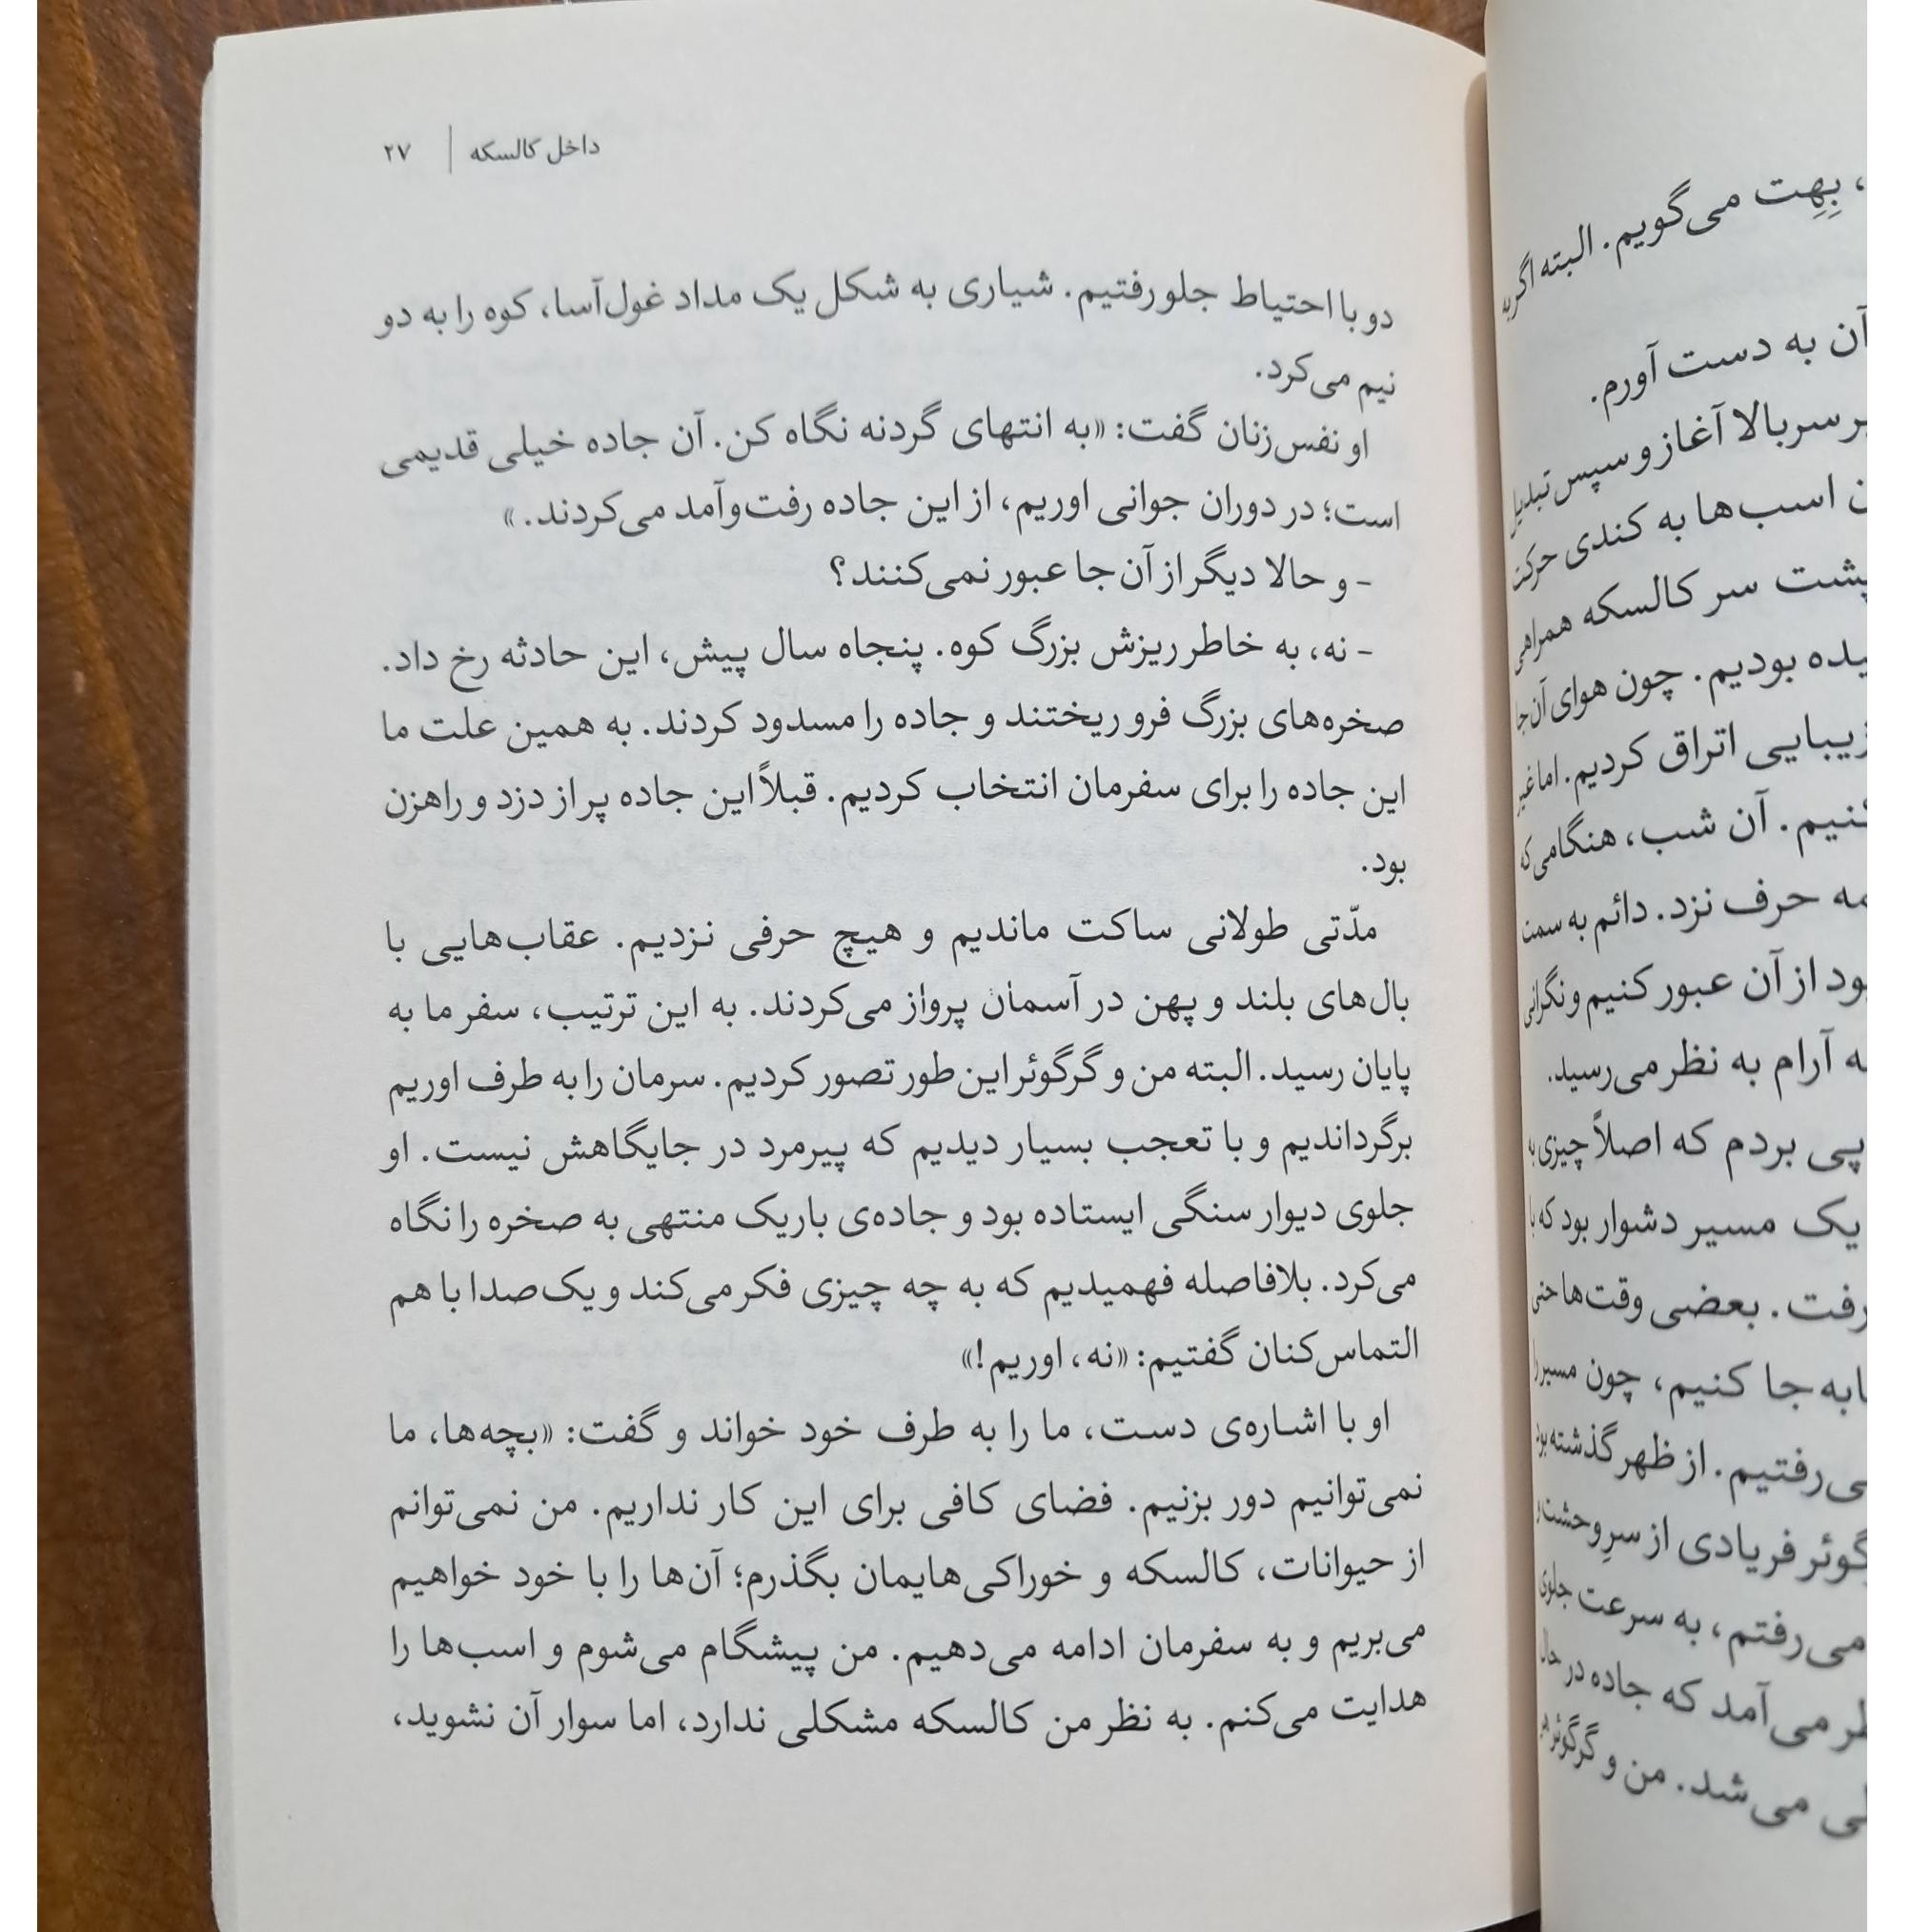 داخل کالسکه | ۲۷
دو با احتیاط جلو رفتیم. شیاری به شکل یک مداد غول‌آسا، کوه را به دو
نیم می‌کرد.
او نفس‌زنان گفت: «به انتهای گردنه نگاه کن. آن جاده خیلی قدیمی
است؛ در دوران جوانی اوریم، از این جاده رفت‌وآمد می‌کردند.»
- و حالا دیگر از آن‌جا عبور نمی‌کنند؟
- نه، به خاطر ریزش بزرگ کوه. پنجاه سال پیش، این حادثه رخ داد.
صخره‌های بزرگ فرو ریختند و جاده را مسدود کردند. به همین علت ما
این جاده را برای سفرمان انتخاب کردیم. قبلاً این جاده پر از دزد و راهزن
بود.
مدّتی طولانی ساکت ماندیم و هیچ حرفی نزدیم. عقاب‌هایی با
بال‌های بلند و پهن در آسمان پرواز می‌کردند. به این ترتیب، سفر ما به
پایان رسید. البته من و گرگوئر این‌طور تصور کردیم. سرمان را به طرف اوریم
برگرداندیم و با تعجب بسیار دیدیم که پیرمرد در جایگاهش نیست. او
جلوی دیوار سنگی ایستاده بود و جاده‌ی باریک منتهی به صخره را نگاه
می‌کرد. بلافاصله فهمیدیم که به چه چیزی فکر می‌کند و یک‌صدا با هم
التماس‌کنان گفتیم: «نه، اوریم!»
او با اشاره‌ی دست، ما را به طرف خود خواند و گفت: «بچه‌ها، ما
نمی‌توانیم دور بزنیم. فضای کافی برای این کار نداریم. من نمی‌توانم
از حیوانات، کالسکه و خوراکی‌هایمان بگذرم؛ آن‌ها را با خود خواهیم
می‌بریم و به سفرمان ادامه می‌دهیم. من پیشگام می‌شوم و اسب‌ها را
هدایت می‌کنم. به نظر من کالسکه مشکلی ندارد، اما سوار آن نشوید،
، بِهِت می‌گویم. البته اگر به
آن به دست آورم.
سربالا آغاز و سپس تبدیل
اسب‌ها به کندی حرکت
پشت سر کالسکه همراهی
بودیم. چون هوای آن‌جا
زیبایی اتراق کردیم. اما غیر
کنیم. آن شب، هنگامی که
حرف نزد. دائم به سمت
از آن عبور کنیم و نگرانی
آرام به نظر می‌رسید.
پی بردم که اصلاً چیزی به
یک مسیر دشوار بود که با
رفت. بعضی وقت‌ها حتی
جا کنیم، چون مسیر را
می‌رفتیم. از ظهر گذشته بود
فریادی از سرِ وحشت
می‌رفتم، به سرعت جلوی
می‌آمد که جاده در حال
می‌شد. من و گرگوئر